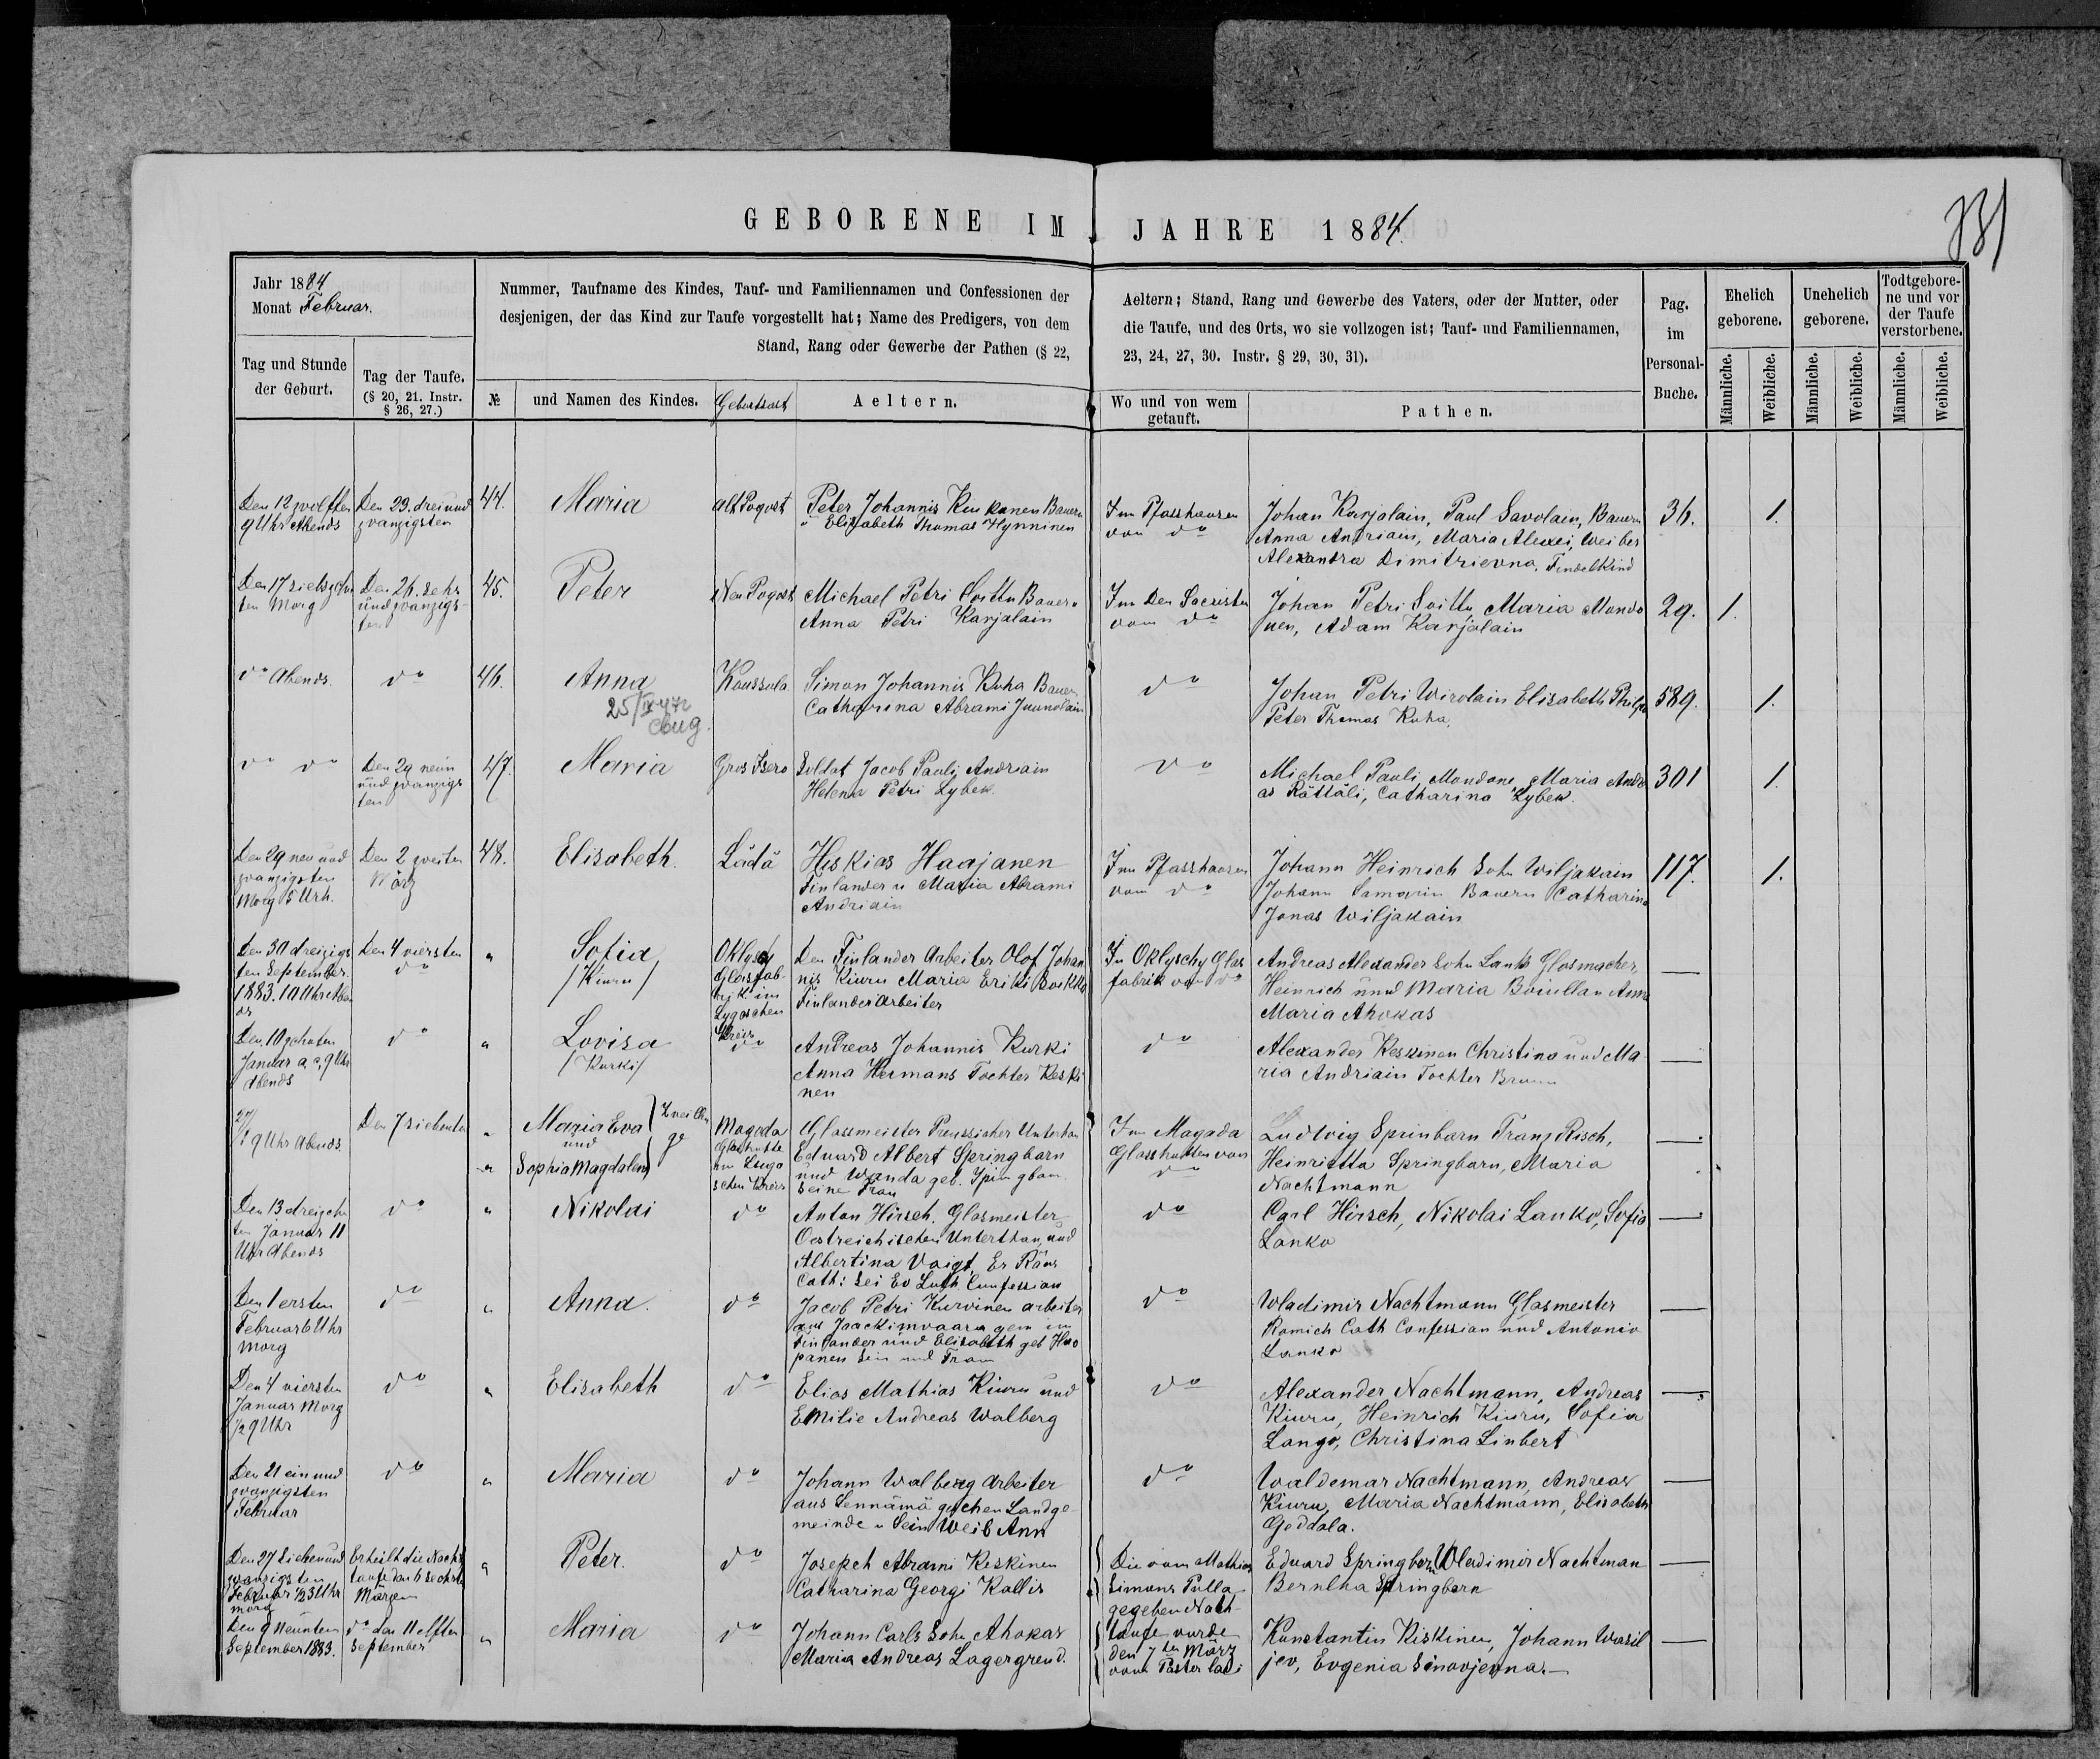 GEBORENE IM JAHRE 1884.
131
Jahr 1884
Monat Februar.
Nummer, Taufname des Kindes, Tauf- und Familiennamen und Confessionen der
desjenigen, der das Kind zur Taufe vorgestellt hat; Name des Predigers, von dem
Stand, Rang oder Gewerbe der Pathen (§ 22,
Aeltern; Stand, Rang und Gewerbe des Vaters, oder der Mutter, oder
die Taufe, und des Orts, wo sie vollzogen ist; Tauf- und Familiennamen,
23, 24, 27, 30. Instr. § 29, 30, 31).
Pag.
im
Personal-
Buche.
Ehelich
geborene.
Unehelich
geborene.
Todtgebore-
ne und vor
der Taufe
verstorbene.
Tag und Stunde
der Geburt.
Tag der Taufe.
(§ 20, 21. Instr.
§ 26, 27.)
№
und Namen des Kindes.
Geburtsort
Aeltern.
Wo und von wem
getauft.
Pathen.
Männliche.
Weibliche.
Männliche.
Weibliche.
Männliche.
Weibliche.
Den 12 zwolften
9 Uhr Abends
Den 23. drei und
zvanzigsten
44.
Maria
Alt Pogost
Peter Johannis Kukkanen Bauern
u Elizabeth Thomas Hynninen
Im Pfasshausen
von do
Johan Karjalain, Paul Savolain, Bauern
Anna Andriain, Maria Alexei, Weiber
Alexandra Dimitrievna, Findelkind
36.
1.
Morg
und zvanzigs-
ten
45.
Peter
Neu Pogost
Michael Petri Soittu Bauer u
Anna Petri Karjalain
Im Den Sacristei
von do
Johan Petri Soittu, Maria Mondo
nen, Adam Karjalain
29.
1.
do Abends.
do
46.
Anna
Koussula
Simon Johannis Kuha Bauer
Catharina Abrami Juunolain
do
Johan Petri Wirolain Elisabeth Philipp
Peter Thomas Kuha.
589.
1.
do do
Den 29 neun
und zvanzigs
ten
47.
Maria
Gros Isero
Soldat Jacob Pauli Andriain
Helena Petri Lybek.
do
Michael Pauli Mondone, Maria Andre
as Rättäli, Catharina Lybek.
301
1.
Den 29 neu und
zvanzigsten
Morg 5 Urh.
Den 2 zweiten
März
48.
Elisabeth.
Lädä
Heskias Haajanen
Finlander u Maria Abrami
Andriain
Im Pfasshausen
von do
Johann Heinrich Sohn Wiljakain
Johann Samarin Bauern Catharina
Jonas Wiljakain
117.
1.
Den 30 dreizigs
ten September.
1883. 10 Uhr Aben
ds
Den 4 viersten
do
"
Sofia
/Kiuru/
Oklyschy
Glasfab-
rik im
Lugaschen
Kreis
Den Finlander Arbeiter Olof Johan
nis Kiuru Maria Eriki Boikko
Finlander arbeiter
In Oklyschy Glas
fabrik von do
Andreas Alexander Sohn Lanko Glasmacher,
Heinrich und Maria Anna
Maria Ahokas
—
Den 10 zehnten
Januar a. c. 9 Uhr
Abends
do
"
Lovisa
/Kurki/
do
Andreas Johannis Kurki
Anna Hermans Tochter Keski
nen
do
Alexander Keskinen Christina und Ma
ria Andriain Tochter
—
27/1 9 Uhr Abends.
Den 7 siebenten
"
Maria Eva
und
" Sophia Magdalena
Zwillin
ge
Magada
Glashutte
im Luga
schen Kreis
Glassmeister Preussischer Unterthan
Eduard Albert Springbarn
und Wanda geb. Springbarn
seine Frau
Im Magada
Glasshutten von
do
Ludvig Sprinbarn Franz Risch,
Heinrietta Springbarn, Maria
Nachtmann
—
Den 13 dreizehn
ten Januar 11
Uhr Abends
do
"
Nikolai
do
Anton Hirsch. Glasmeister
Oestreichischen Unterthan, und
Albertina Voigt, Er Röm
Cath: Sei Ev Luth Confession
do
Carl Hirsch, Nikolai Lanko, Sofia
Lanko
—
Den 1 ersten
Februar 6 Uhr
Morg
do
"
Anna.
do
Jacob Petri Kurvinen arbeiter
aus Jaackimvaara gem in
Finlander und Elisabeth geb Haa
panen
do
Wladimir Nachtmann Glasmeister
Romich Cath Confession und Antonio
Lanko
—
Den 4 viersten
Januar Morg
1/2 9 Uhr
do
"
Elisabeth
do
Elias Mathias Kiuru und
Emilie Andreas Walberg
do
Alexander Nachtmann, Andreas
Kiuru, Heinrich Kiuru, Sofia
Lango, Christina Linbert
—
Den 21 ein und
zvanzigsten
Februar
do
"
Maria
do
Johann Walberg arbeiter
aus Landge
meinde u Sein Weib Ann
do
Waldemar Nachtmann, Andreas
Kiuru, Maria Nachtmann, Elisabeth
Goddala.
—
Den 27 Sieben und
zvanzigsten
Februar 1/2 3 Uhr
Morg
Ertheilt die Noth
taufe den 6 Sechste
Märzen
"
Peter.
do
Joseph Abrami Keskinen
Catharina Georgi Kallis
Die vom Mathias
Simons Pulla
gegeben Noth
taufe wurde
den 7ten März
vom Paster
Eduard Springborn Wladimir Nachtman
Springbern
—
Den 9 Neunten
September 1883.
do den 11 elften
September
"
Maria
do
Johann Carls Sohn Ahokas
Maria Andreas Lagergrend.
Konstantin Kiskinen, Johann Wasil
jev, Evgenia Sinovjevna.—
—